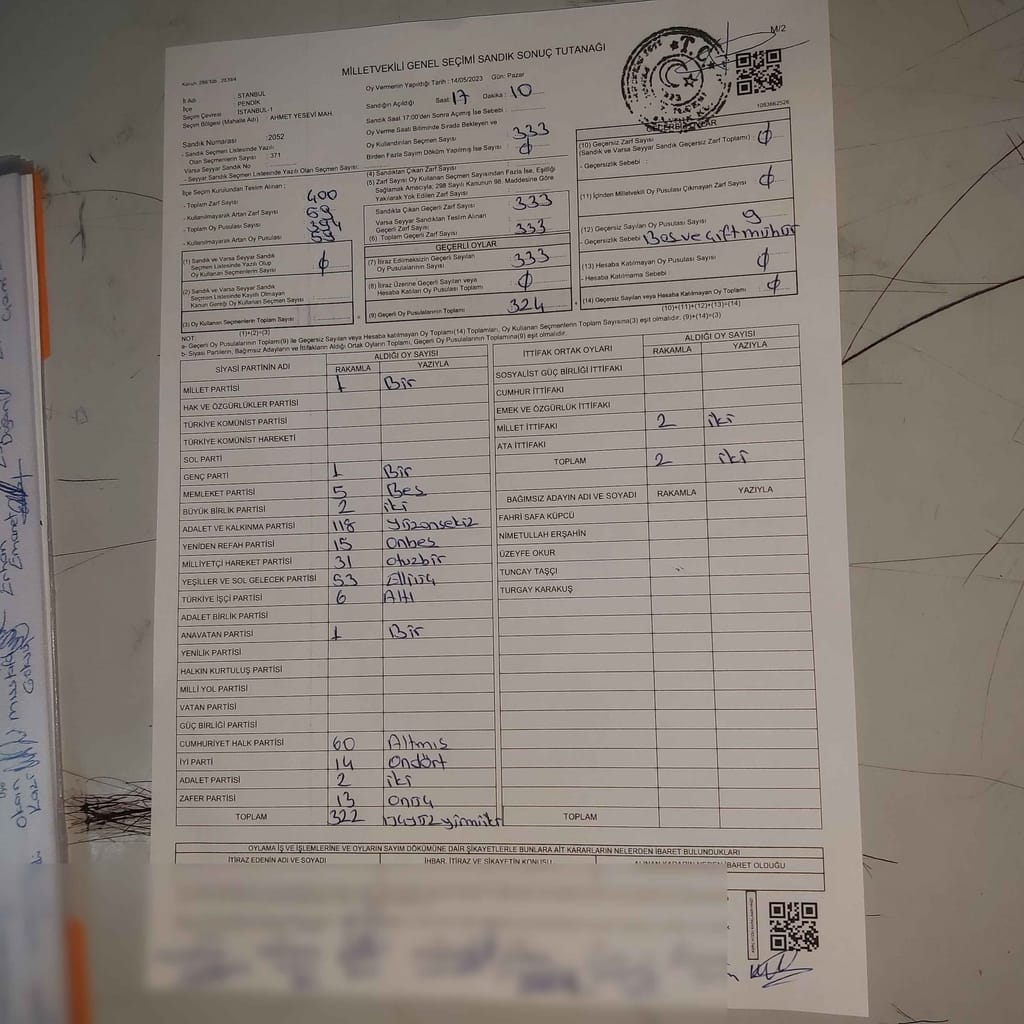 M/2
MİLLETVEKİLİ GENEL SEÇİMİ SANDIK SONUÇ TUTANAĞI
İl Adı : İSTANBUL
İlçe : PENDİK
Seçim Çevresi : İSTANBUL-1
Seçim Bölgesi (Mahalle Adı) : AHMET YESEVİ MAH.
Sandık Numarası : 2052
- Sandık Seçmen Listesinde Yazılı
Olan Seçmenlerin Sayısı : 371
Varsa Seyyar Sandık No :
- Seyyar Sandık Seçmen Listesinde Yazılı Olan Seçmen Sayısı:
Oy Vermenin Yapıldığı Tarih : 14/05/2023 Gün: Pazar
Sandığın Açıldığı Saat: 17 Dakika : 10
Sandık Saat 17:00'den Sonra Açılmış İse Sebebi :
Oy Verme Saati Bitiminde Sırada Bekleyen ve
Oy Kullandırılan Seçmen Sayısı : 333
Birden Fazla Sayım Döküm Yapılmış İse Sayısı : ϕ
1083662526
İlçe Seçim Kurulundan Teslim Alınan :
- Toplam Zarf Sayısı : 400
- Kullanılmayarak Artan Zarf Sayısı :
- Toplam Oy Pusulası Sayısı :
- Kullanılmayarak Artan Oy Pusulası :
(1) Sandık ve Varsa Seyyar Sandık
Seçmen Listesinde Yazılı Olup
Oy Kullanan Seçmenlerin Sayısı : ϕ
(2) Sandık ve Varsa Seyyar Sandık
Seçmen Listesinde Kayıtlı Olmayan
Kanun Gereği Oy Kullanan Seçmen Sayısı :
(3) Oy Kullanan Seçmenlerin Toplam Sayısı :
(1)+(2)=(3)
(4) Sandıktan Çıkan Zarf Sayısı :
(5) Zarf Sayısı Oy Kullanan Seçmen Sayısından Fazla İse, Eşitliği
Sağlamak Amacıyla; 298 Sayılı Kanunun 98. Maddesine Göre
Yakılarak Yok Edilen Zarf Sayısı :
Sandıkta Çıkan Geçerli Zarf Sayısı : 333
Varsa Seyyar Sandıktan Teslim Alınan
Geçerli Zarf Sayısı :
(6) Toplam Geçerli Zarf Sayısı : 333
GEÇERLİ OYLAR
(7) İtiraz Edilmeksizin Geçerli Sayılan
Oy Pusulalarının Sayısı : 333
(8) İtiraz Üzerine Geçerli Sayılan veya
Hesaba Katılan Oy Pusulası Toplamı : ϕ
(9) Geçerli Oy Pusulalarının Toplamı : 324
(10) Geçersiz Zarf Sayısı
(Sandık ve Varsa Seyyar Sandık Geçersiz Zarf Toplamı) : ϕ
- Geçersizlik Sebebi :
(11) İçinden Milletvekili Oy Pusulası Çıkmayan Zarf Sayısı : ϕ
(12) Geçersiz Sayılan Oy Pusulası Sayısı : 9
- Geçersizlik Sebebi : Bos ve çift mühür
(13) Hesaba Katılmayan Oy Pusulası Sayısı : ϕ
- Hesaba Katılmama Sebebi :
(14) Geçersiz Sayılan veya Hesaba Katılmayan Oy Toplamı : ϕ
(10)+(11)+(12)+(13)=(14)
NOT:
a- Geçerli Oy Pusulalarının Toplamı(9) ile Geçersiz Sayılan veya Hesaba katılmayan Oy Toplamı(14) Toplamları, Oy Kullanan Seçmenlerin Toplam Sayısına(3) eşit olmalıdır; (9)+(14)=(3)
b- Siyasi Partilerin, Bağımsız Adayların ve İttifakların Aldığı Ortak Oyların Toplamı, Geçerli Oy Pusulalarının Toplamına(9) eşit olmalıdır.
SİYASİ PARTİNİN ADI ALDIĞI OY SAYISI
RAKAMLA YAZIYLA
MİLLET PARTİSİ 1 Bir
HAK VE ÖZGÜRLÜKLER PARTİSİ
TÜRKİYE KOMÜNİST PARTİSİ
TÜRKİYE KOMÜNİST HAREKETİ
SOL PARTİ
GENÇ PARTİ 1 Bir
MEMLEKET PARTİSİ 5 Bes
BÜYÜK BİRLİK PARTİSİ 2 iki
ADALET VE KALKINMA PARTİSİ 118 yüzonsekiz
YENİDEN REFAH PARTİSİ 15 Onbes
MİLLİYETÇİ HAREKET PARTİSİ 31 otuzbir
YEŞİLLER VE SOL GELECEK PARTİSİ 53 Elliüç
TÜRKİYE İŞÇİ PARTİSİ 6 Altı
ADALET BİRLİK PARTİSİ
ANAVATAN PARTİSİ 1 Bir
YENİLİK PARTİSİ
HALKIN KURTULUŞ PARTİSİ
MİLLİ YOL PARTİSİ
VATAN PARTİSİ
GÜÇ BİRLİĞİ PARTİSİ
CUMHURİYET HALK PARTİSİ 60 Altmıs
İYİ PARTİ 14 Ondört
ADALET PARTİSİ 2 iki
ZAFER PARTİSİ 13 Onüç
TOPLAM 322 üçyüz yirmiiki
İTTİFAK ORTAK OYLARI ALDIĞI OY SAYISI
RAKAMLA YAZIYLA
SOSYALİST GÜÇ BİRLİĞİ İTTİFAKI
CUMHUR İTTİFAKI
EMEK VE ÖZGÜRLÜK İTTİFAKI
MİLLET İTTİFAKI 2 iki
ATA İTTİFAKI
TOPLAM 2 iki
BAĞIMSIZ ADAYIN ADI VE SOYADI RAKAMLA YAZIYLA
FAHRİ SAFA KÜPCÜ
NİMETULLAH ERŞAHİN
ÜZEYFE OKUR
TUNCAY TAŞÇI
TURGAY KARAKUŞ
TOPLAM
OYLAMA İŞ VE İŞLEMLERİNE VE OYLARIN SAYIM DÖKÜMÜNE DAİR ŞİKAYETLERLE BUNLARA AİT KARARLARIN NELERDEN İBARET BULUNDUKLARI
İTİRAZ EDENİN ADI VE SOYADI İHBAR, İTİRAZ VE ŞİKAYETİN KONUSU ALINAN KARARIN NEDEN İBARET OLDUĞU